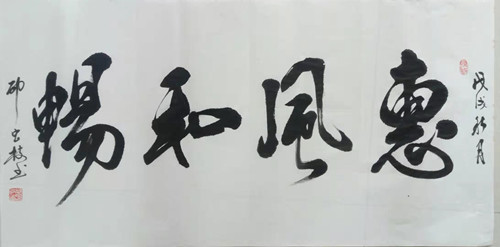 戊戌秋月
惠風和暢